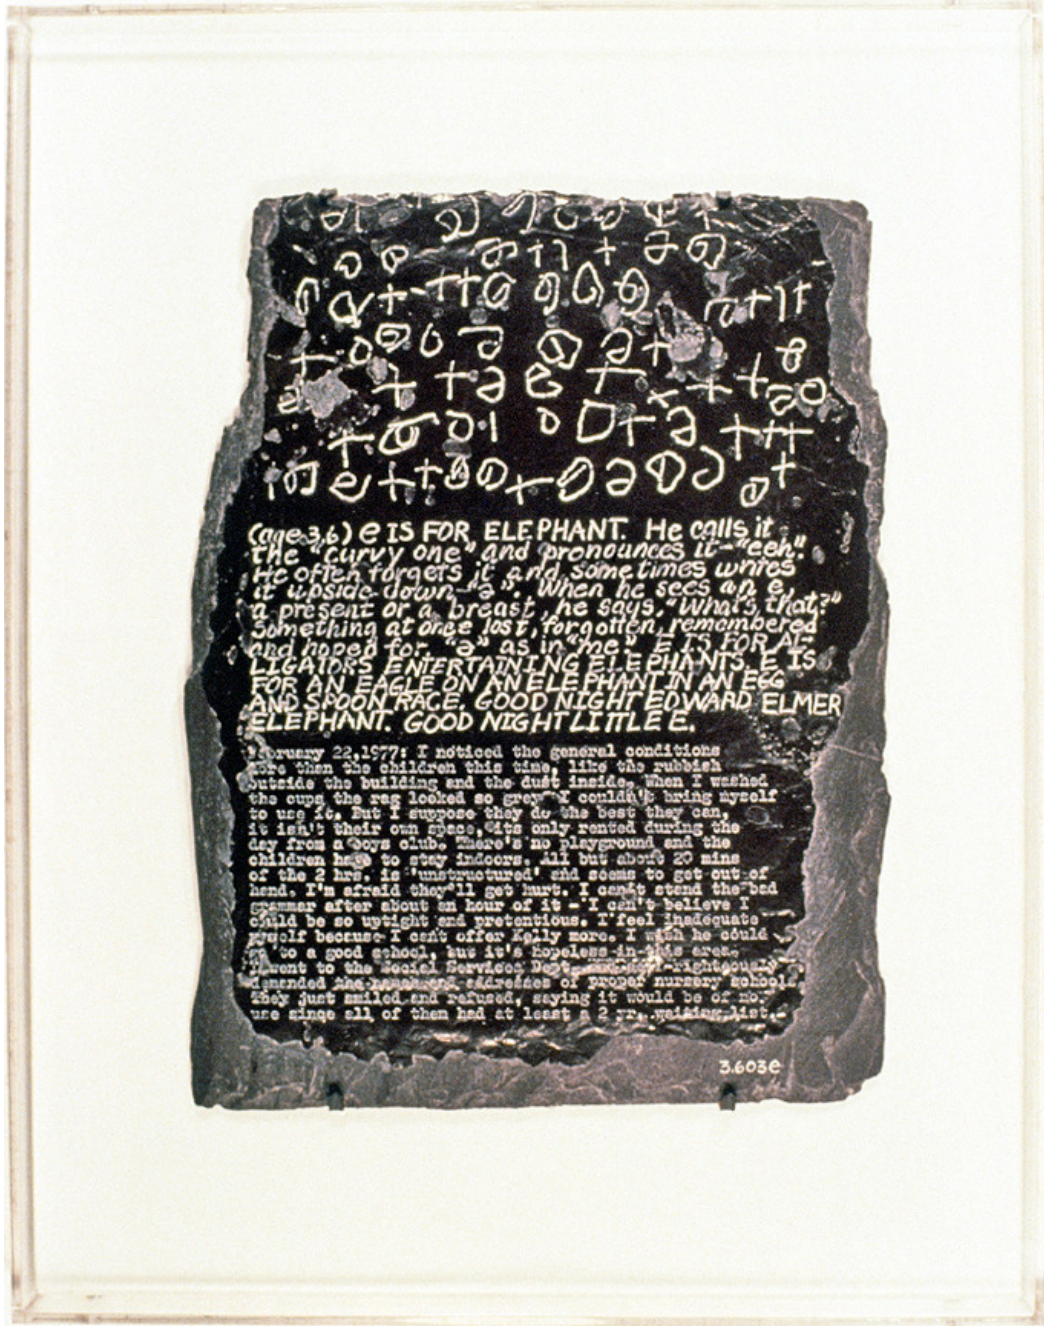 (age 3,6) e IS FOR ELEPHANT. He calls it
the "curvy one" and pronounces it-"eeh".
He often forgets it and sometimes writes
it upside down-"ə". When he sees an e,
a present or a breast, he says, "What's that?"
Something at once lost, forgotten, remembered
and hoped for- "ə" as in "me." E IS FOR AL-
LIGATORS ENTERTAINING ELEPHANTS. E IS
FOR AN EAGLE ON AN ELEPHANT IN AN EGG
AND SPOON RACE. GOOD NIGHT EDWARD ELMER
ELEPHANT. GOOD NIGHT LITTLE E.
February 22,1977: I noticed the general conditions
more than the children this time, like the rubbish
outside the building and the dust inside. When I washed
the cups the rag looked so grey I couldn't bring myself
to use it. But I suppose they do the best they can,
it isn't their own space, its only rented during the
day from a boys club. There's no playground and the
children have to stay indoors. All but about 20 mins
of the 2 hrs. is 'unstructured' and seems to get out of
hand. I'm afraid they'll get hurt. I can't stand the bad
grammar after about an hour of it - I can't believe I
could be so uptight and pretentious. I feel inadequate
myself because I cant offer Kelly more. I wish he could
go to a good school, but it's hopeless in this area.
I went to the Social Services Dept. and self-righteously
demanded the names and addresses of proper nursery schools.
They just smiled and refused, saying it would be of no
use since all of them had at least a 2 yr. waiting list.
3.603e